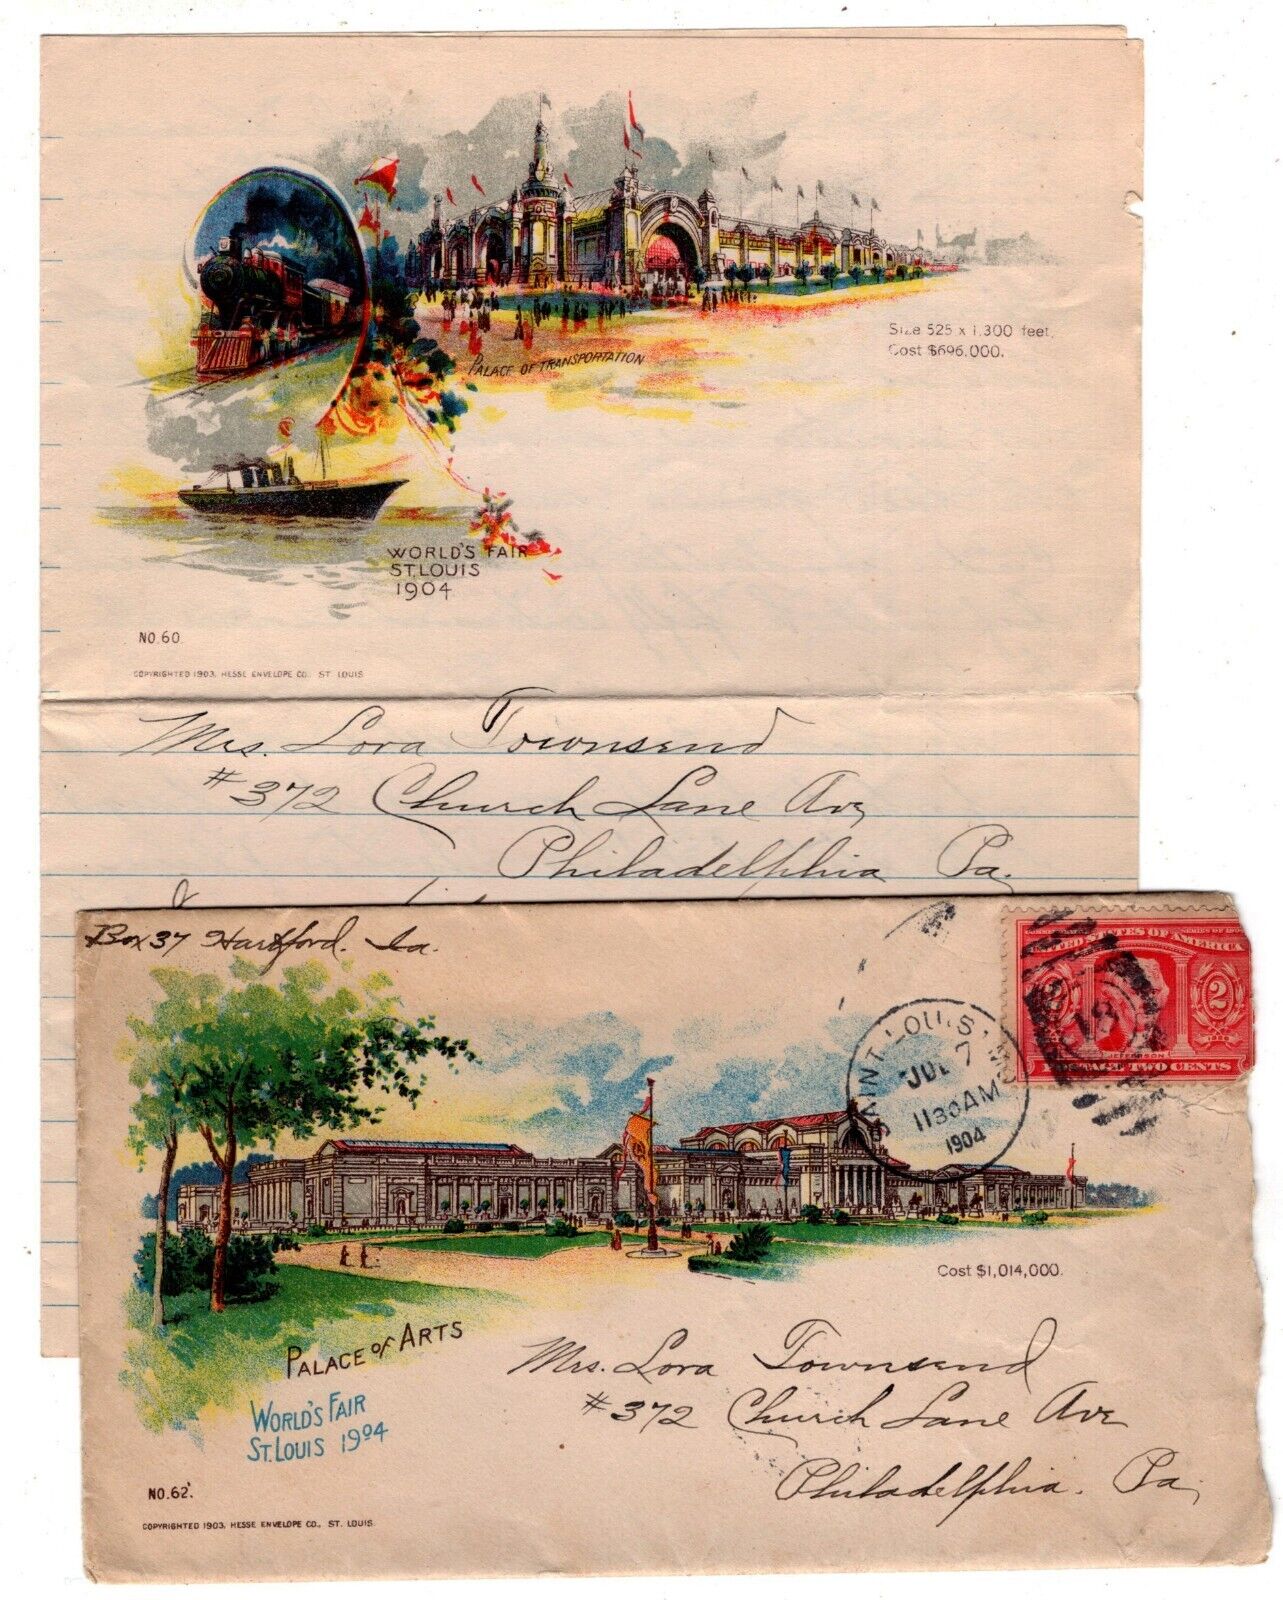 Size 525 x 1,300 feet.
Cost $696,000.
PALACE OF TRANSPORTATION
WORLD'S FAIR
ST. LOUIS
1904
NO. 60
COPYRIGHTED 1903, HESSE ENVELOPE CO., ST. LOUIS
Mrs. Lora Townsend
#372 Church Lane Ave
Philadelphia Pa.
Box 37 Hartford. Ia.
UNITED STATES OF AMERICA
2 2
JEFFERSON
TWO CENTS
SAINT LOUIS, MO
JUL 7
1130AM
1904
18
Cost $1,014,000.
PALACE OF ARTS
WORLD'S FAIR
ST. LOUIS 1904
Mrs. Lora Townsend
#372 Church Lane Ave
Philadelphia. Pa.
NO. 62.
COPYRIGHTED 1903, HESSE ENVELOPE CO., ST. LOUIS.